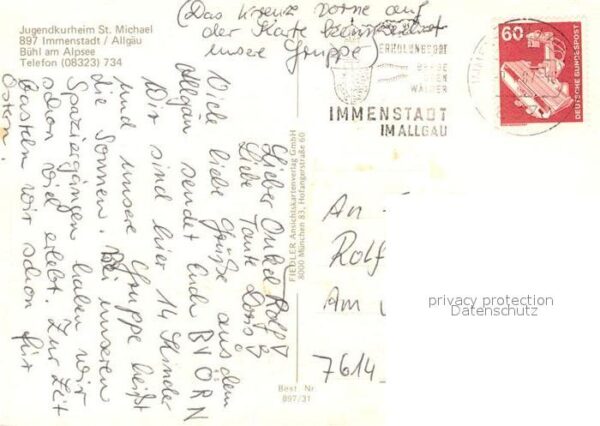 Jugendkurheim St. Michael
897 Immenstadt / Allgäu
Bühl am Alpsee
Telefon (08323) 734
(Das Kreuz vorne auf
der Karte
unsere Gruppe)
Lieber Onkel Rolf
Liebe Tante Doris
Viele liebe Grüße aus dem
Allgäu sendet Euch BJÖRN
Wir sind hier 14 Kinder
und unsere Gruppe heißt
die Sonnen. Bei unseren
Spaziergängen haben wir
schon viel erlebt. Zur Zeit
basteln wir schon für
Ostern.
FIEDLER Ansichtskartenverlag GmbH
8000 München 83, Hofangerstraße 60
Best. Nr
897/31
ERHOLUNGSORT
BERGE
SEEN
WÄLDER
IMMENSTADT
IM ALLGÄU
60
DEUTSCHE BUNDESPOST
An
Rolf
Am
7614
privacy protection
Datenschutz